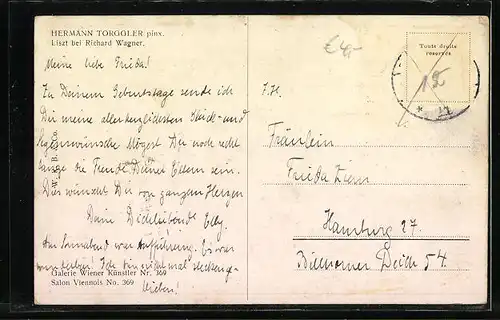 HERMANN TORGGLER pinx.
Liszt bei Richard Wagner.
Meine liebe Frieda!
Zu Deinem Geburtstage sende ich
Dir meine allerherzlichsten Glück- und
Segenswünsche. Mögest Du noch recht
lange die Freude Deiner Eltern sein.
Dies wünscht Dir von ganzem Herzen
Deine Dichliebende Elly.
Am Sonnabend war Aufführung. Es war
wunderbar! Ich bin nicht mal steckenge-
blieben!
Galerie Wiener Künstler Nr. 369
Salon Viennois No. 369
Toute droits
reservés
€4,-
12
* 11
Fräulein
Frieda
Hamburg 27.
Billwärner Deich 54.